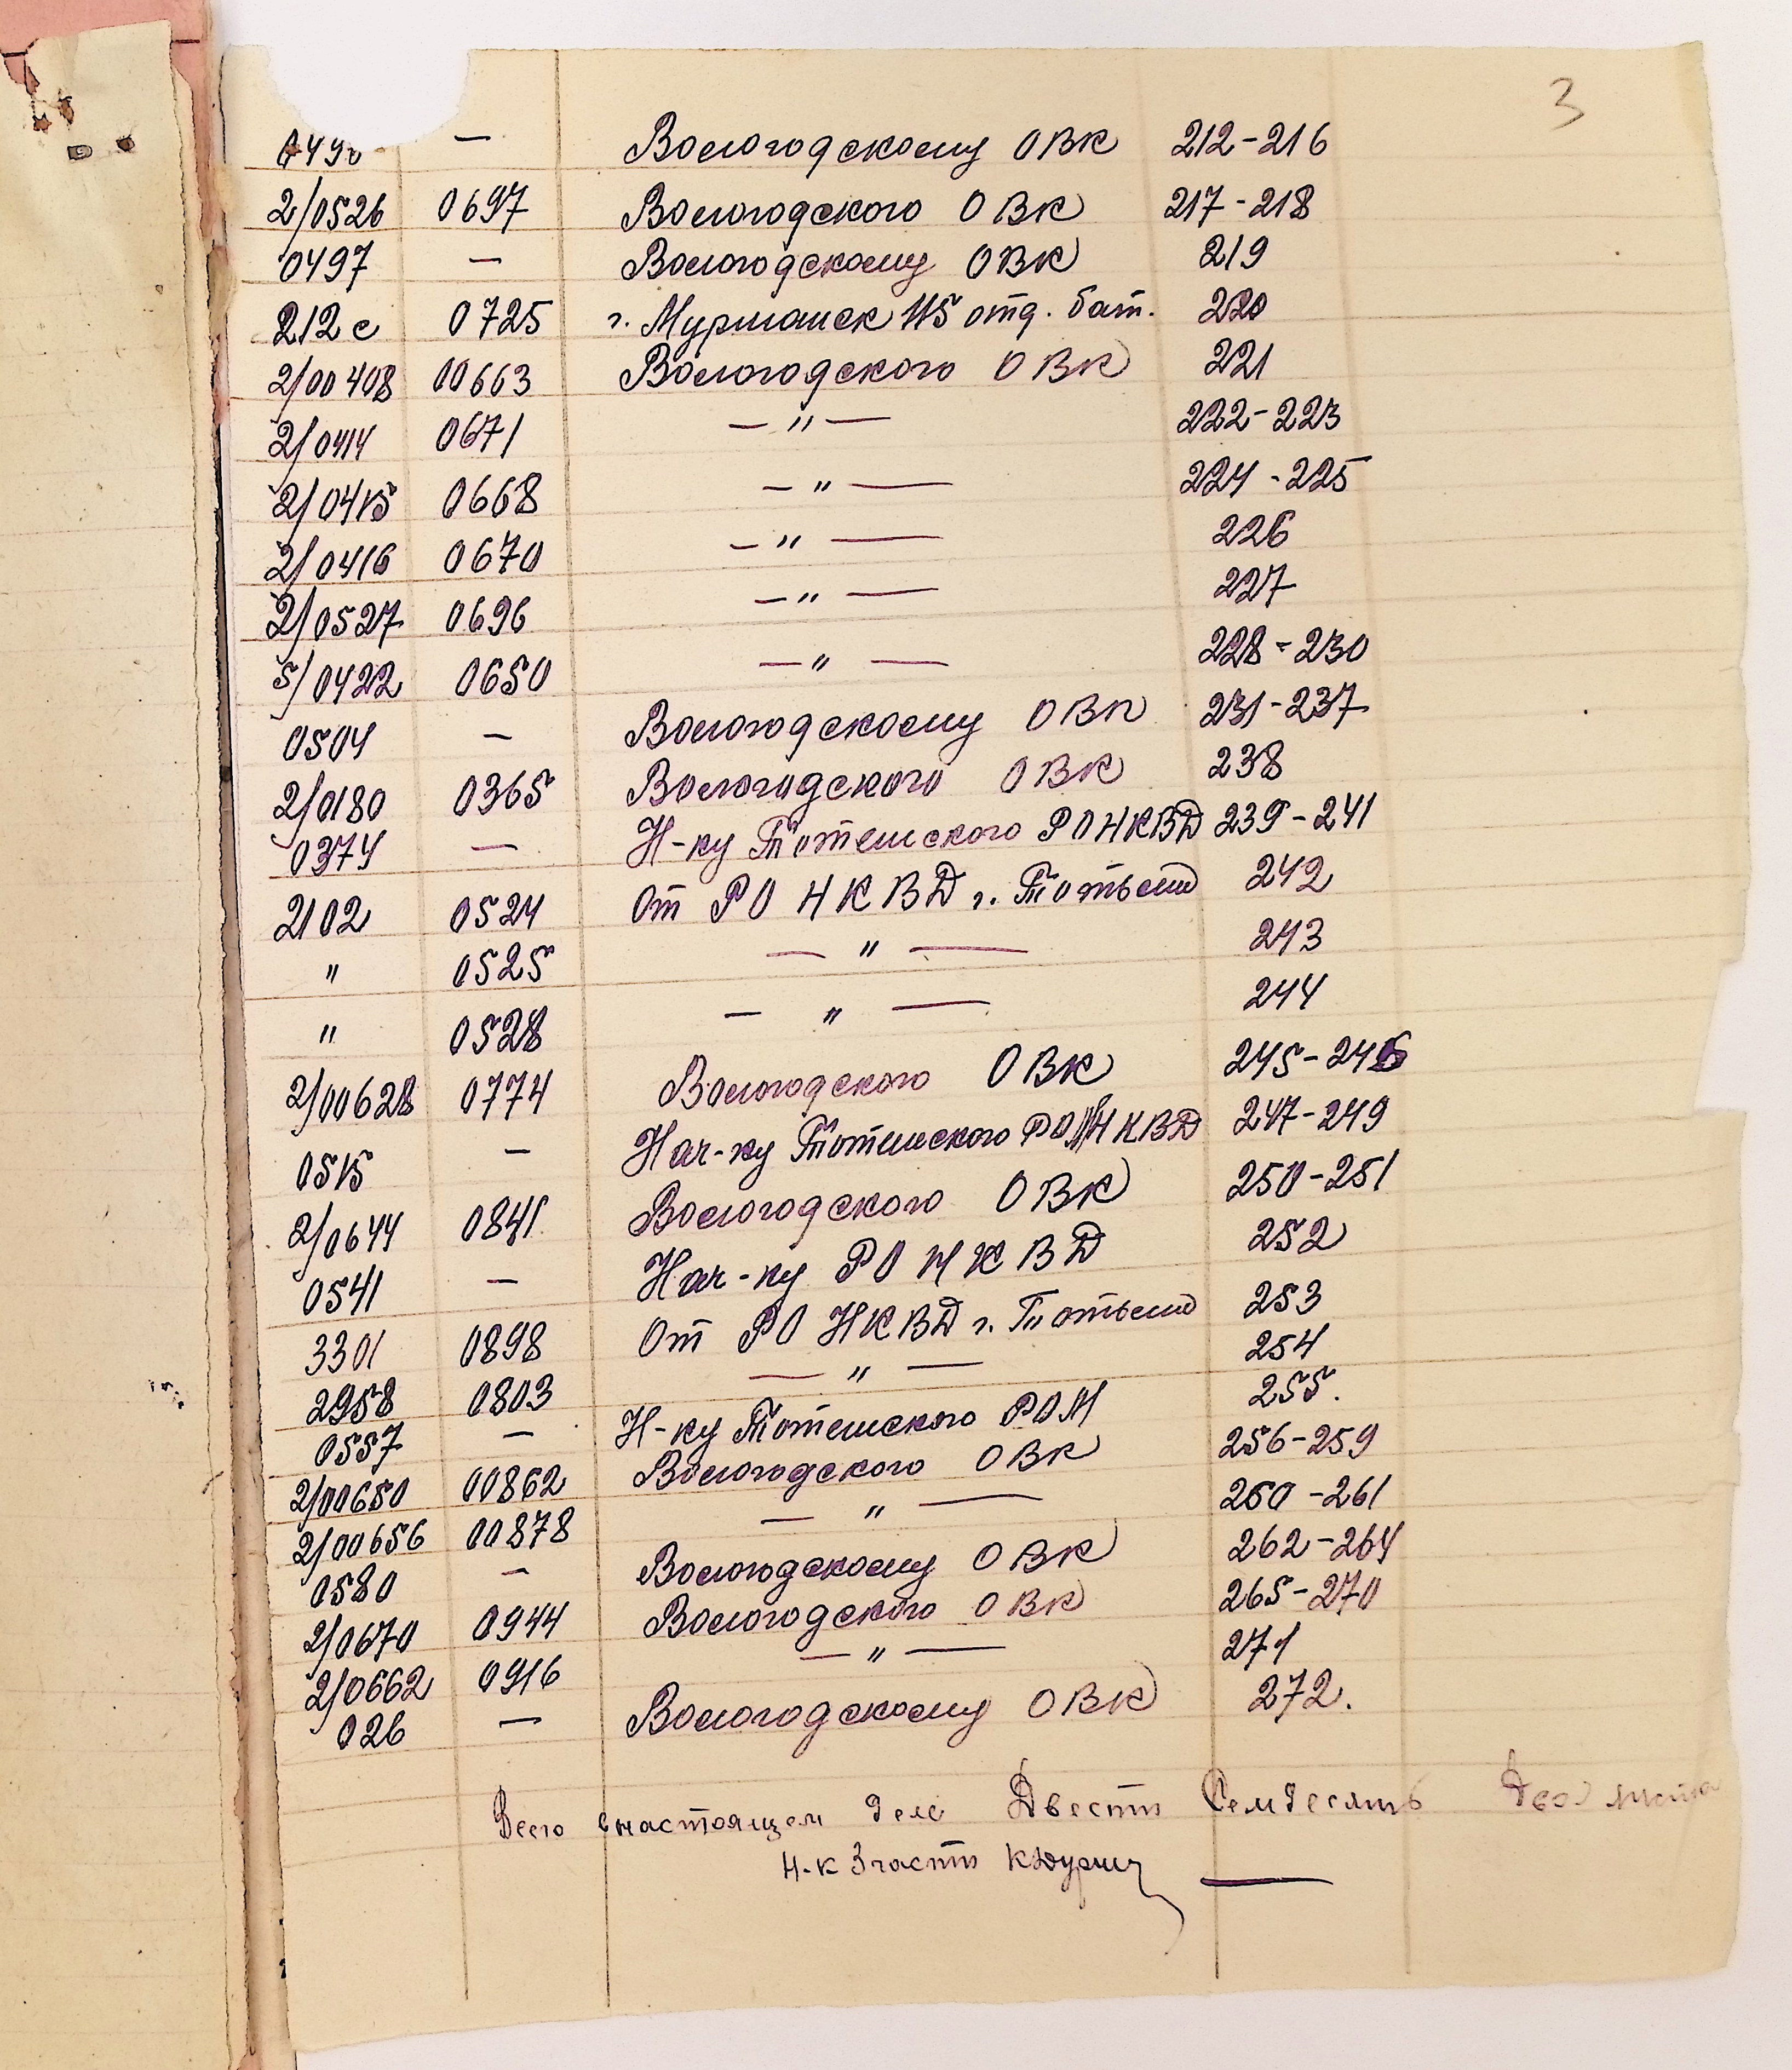 3
049 — Вологодскому ОВК 212-216
2/0526 0697 Вологодского ОВК 217-218
0497 — Вологодскому ОВК 219
212с 0725 г. Мурманск 115 отд. бат. 220
2/00408 00663 Вологодского ОВК 221
2/0414 0671 — " — 222-223
2/0415 0668 — " — 224-225
2/0416 0670 — " — 226
2/0527 0696 — " — 227
5/0422 0650 — " — 228-230
0504 — Вологодскому ОВК 231-237
2/0180 0365 Вологодского ОВК 238
0374 — Н-ку Тотемского РОНКВД 239-241
2102 0524 От РО НКВД г. Тотьма 242
" 0525 — " — 243
" 0528 — " — 244
2/00628 0774 Вологодского ОВК 245-246
0515 — Нач-ку Тотемского РО НКВД 247-249
2/0644 0841 Вологодского ОВК 250-251
0541 — Нач-ку РО НКВД 252
3301 0898 От РО НКВД г. Тотьма 253
2958 0803 — " — 254
0557 — Н-ку Тотемского РОМ 255.
2/00650 00862 Вологодского ОВК 256-259
2/00656 00878 — " — 260-261
0580 — Вологодскому ОВК 262-264
2/0670 0944 Вологодского ОВК 265-270
2/0662 0916 — " — 271
026 — Вологодскому ОВК 272.
Всего в настоящем деле Двести Семдесять два листа
Н-к 3 части